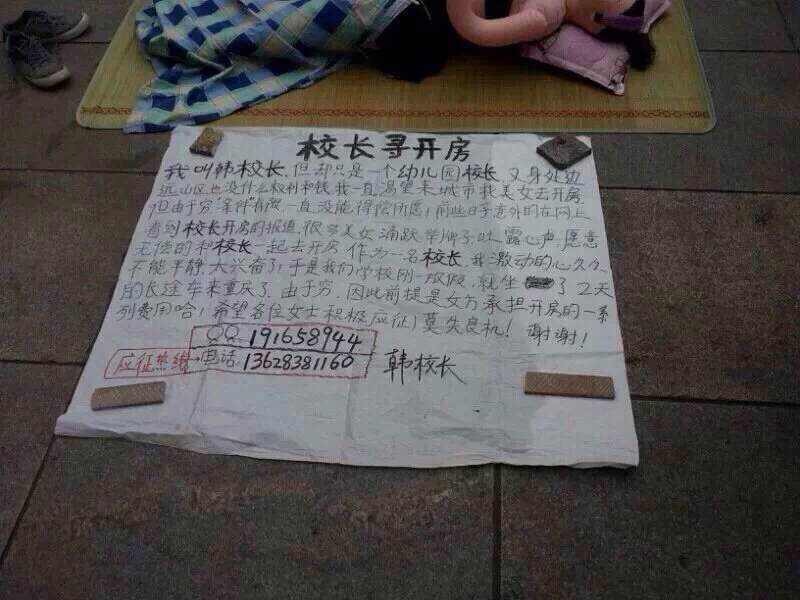 校长寻开房
我叫韩校长，但却只是一个幼儿园校长，又身处边
远山区也没什么权利和钱，我一直渴望来城市找美女去开房
但由于穷，条件有限一直没能得偿所愿！前些日子意外的在网上
看到校长开房的报道，很多美女涌跃举牌子吐露心声，愿意
无偿的和校长一起去开房，作为一名校长，我激动的心久久
不能平静，太兴奋了！于是我们学校刚一放假，就坐了2天
的长途车来重庆了。由于穷，因此前提是女方承担开房的一系
列费用哈！希望各位女士积极应征！莫失良机！谢谢！
QQ 191658944
应征热线 电话 13628381160
韩校长